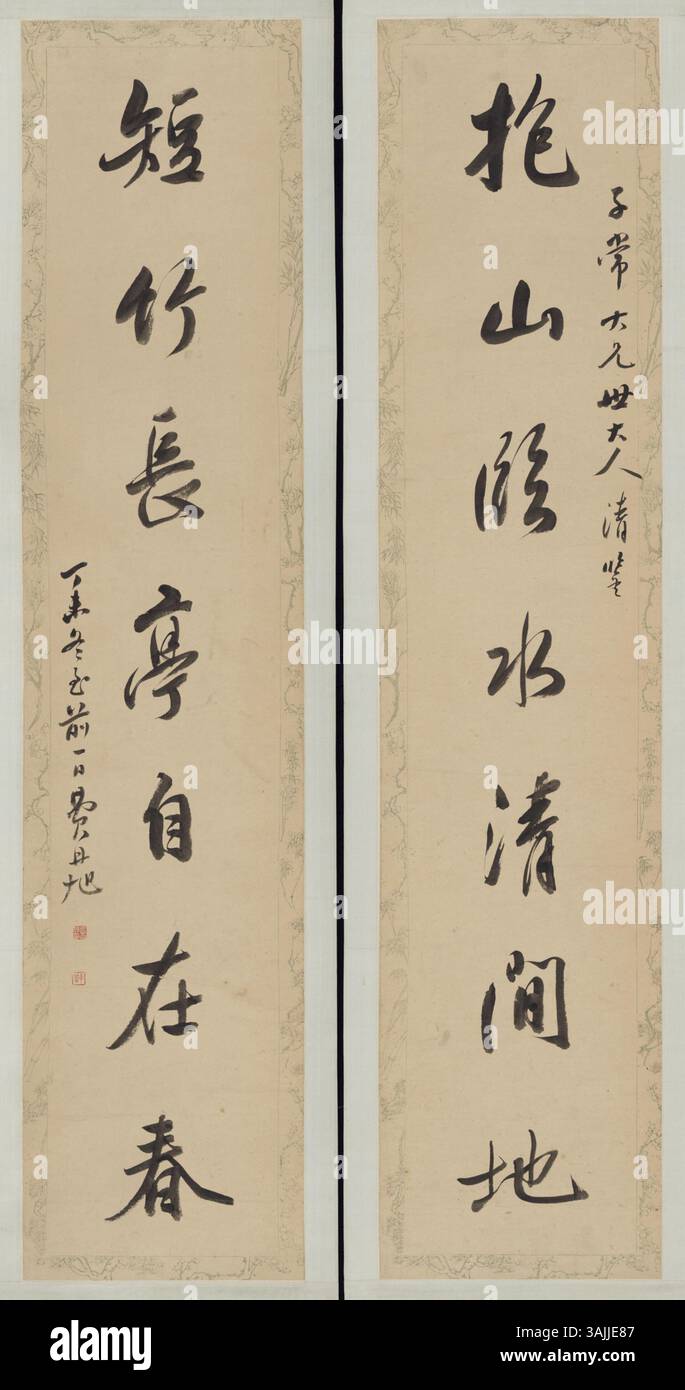 子常大兄世大人清鑒
抱山臨水清閒地
短竹長亭自在春
丁未冬至前一日費丹旭
alamy
Image ID: 3AJJE87
www.alamy.com